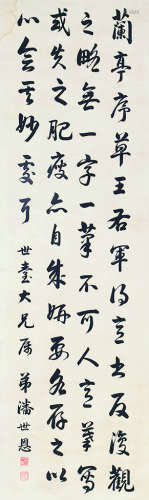 蘭亭序草王右軍得意書反復觀
之略無一字一筆不可人意摹寫
或失之肥瘦亦自成妍要各存之以
心會其妙處可
世臺大兄屬 弟潘世恩